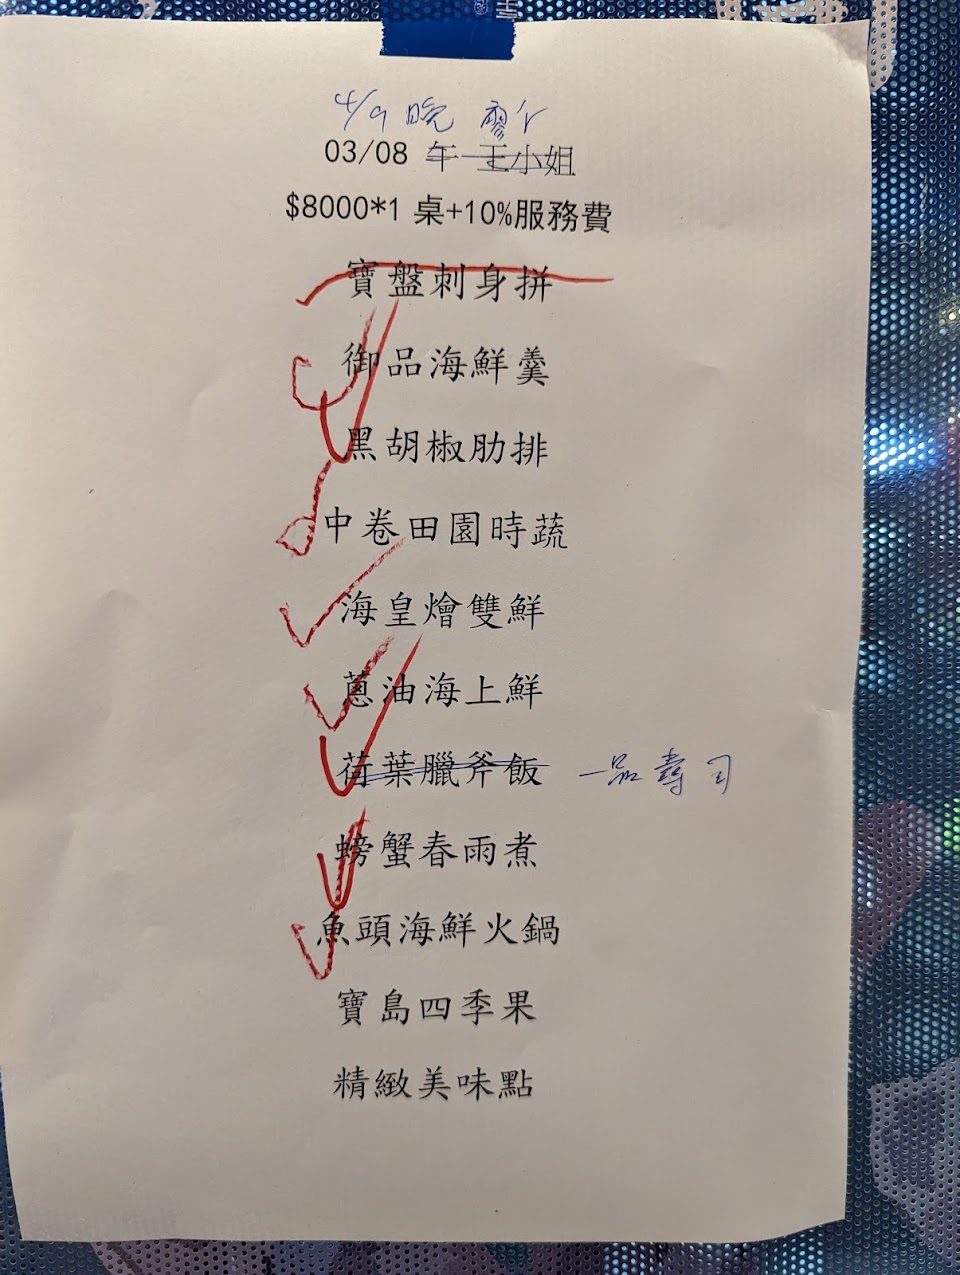 4/9 晚 廖
03/08 午 王小姐
$8000*1 桌+10%服務費
寶盤刺身拼
御品海鮮羹
黑胡椒肋排
中卷田園時蔬
海皇燴雙鮮
蔥油海上鮮
荷葉臘斧飯 一品壽司
螃蟹春雨煮
魚頭海鮮火鍋
寶島四季果
精緻美味點